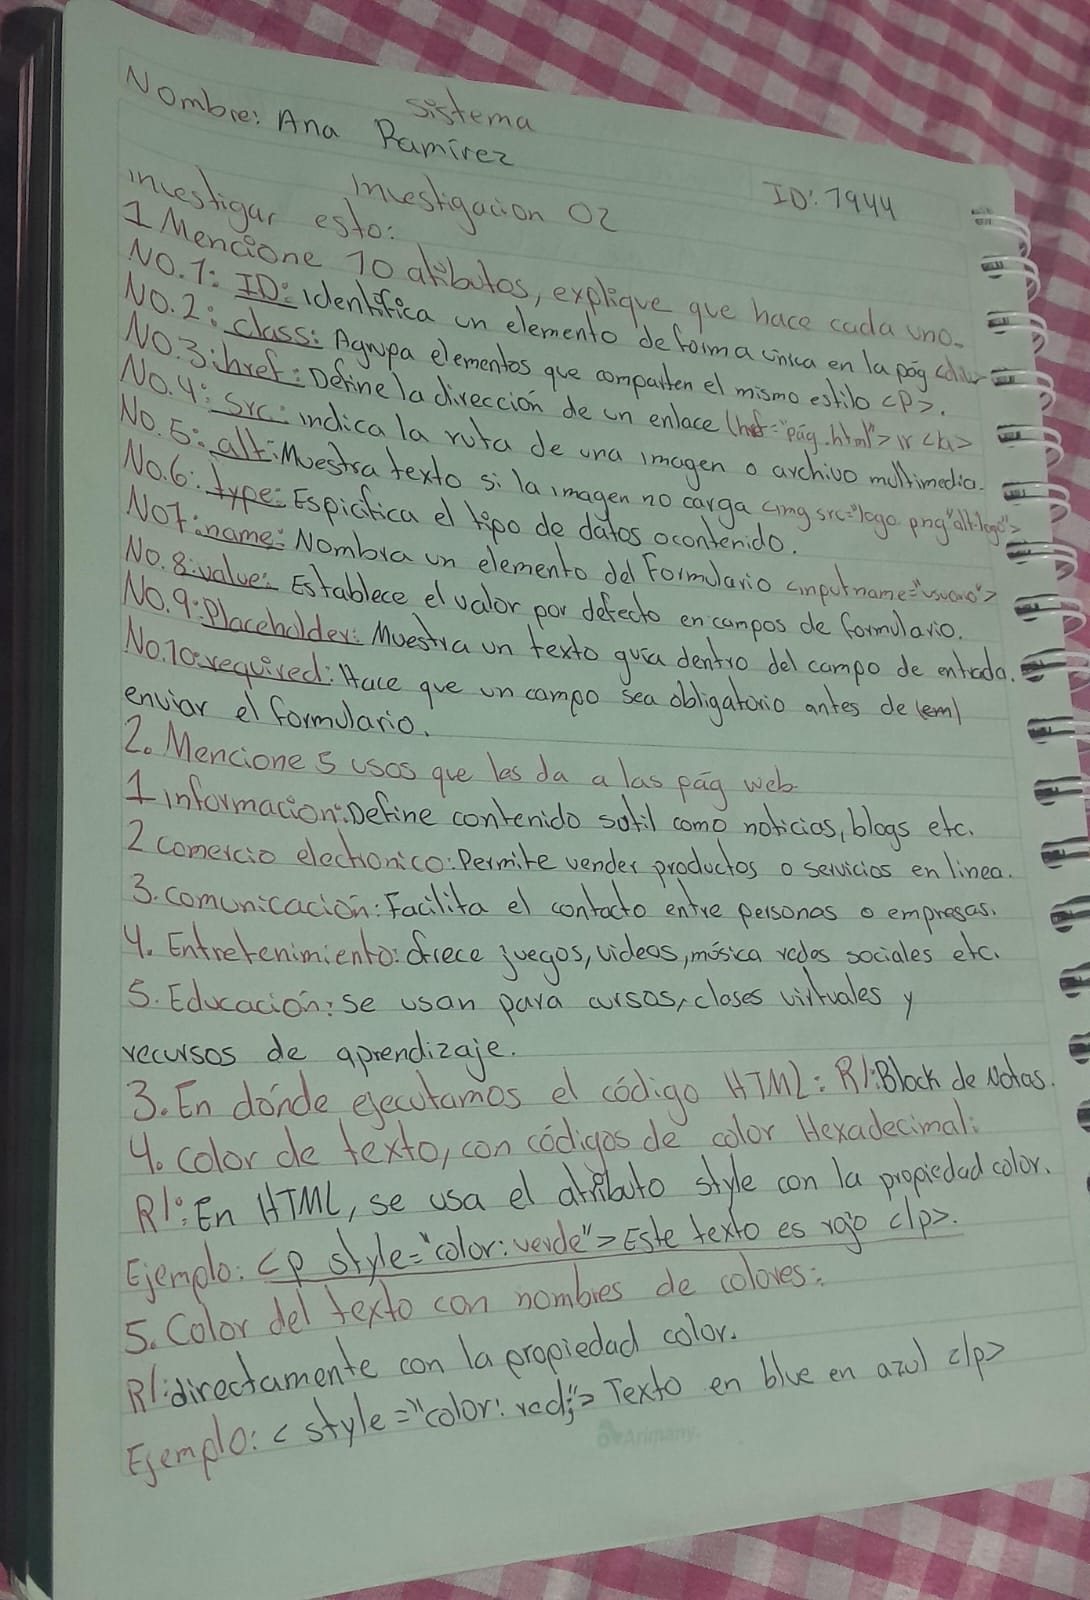 Sistema
Nombre: Ana Ramirez
ID: 7944
Investigacion 02
investigar esto:
1 Mencione 10 atributos, explique que hace cada uno.
No.1: ID: identifica un elemento de forma única en la pág
No.2: class: Agrupa elementos que comparten el mismo estilo <P>.
No.3: href: Define la dirección de un enlace (href="pág.html"> ir <la>
No.4: src: indica la ruta de una imagen o archivo multimedia.
No.5: alt: Muestra texto si la imagen no carga <img src="logo png"alt=logo">
No.6: type: Espicifica el tipo de datos o contenido.
No7: name: Nombra un elemento del Formulario <inputname="usuario">
No.8: value: Establece el valor por defecto en campos de formulario.
No.9: Placeholder: Muestra un texto guia dentro del campo de entrada.
No.10: required: Hace que un campo sea obligatorio antes de (em)
enviar el formulario.
2. Mencione 5 usos que les da a las pág web
1 informacion: Define contenido sutil como noticias, blogs etc.
2 comercio electronico: Permite vender productos o servicios en linea.
3. comunicación: Facilita el contacto entre personas o empresas.
4. Entretenimiento: ofrece juegos, videos, música redes sociales etc.
5. Educación: se usan para cursos, clases virtuales y
recursos de aprendizaje.
3. En dónde ejecutamos el código HTML: R/: Block de Notas.
4. color de texto, con códigos de color Hexadecimal:
R/: En HTML, se usa el atributo style con la propiedad color.
Ejemplo: <p style="color: verde"> Este texto es rojo </p>.
5. Color del texto con nombres de colores:
R/: directamente con la propiedad color.
Ejemplo: < style="color: red;"> Texto en blue en azul </p>
Arimany.